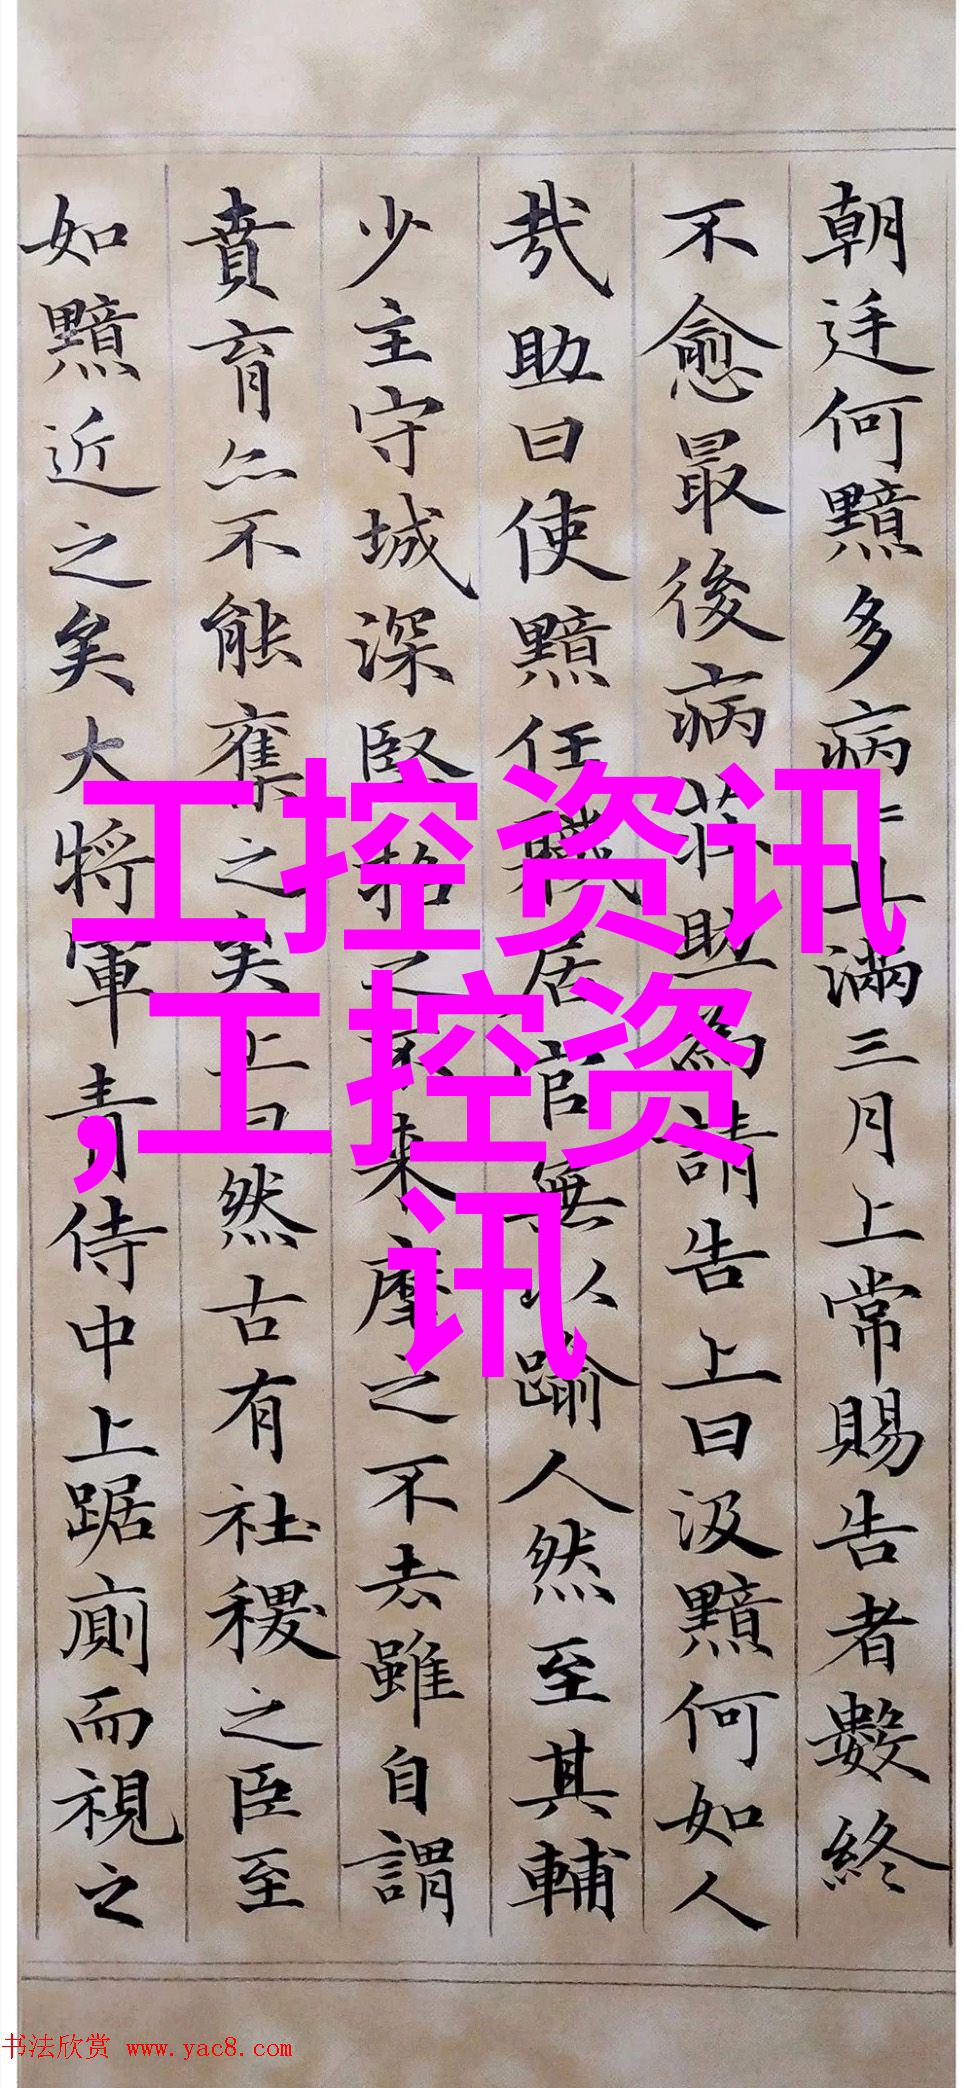 朝廷何黯多病滿三月上常賜告者數終
不愈最後病莊助為請告上曰汲黯何如人
哉助曰使黯任職居官無以踰人然至其輔
少主守城深堅招之不来摩之不去雖自謂
賁育亦不能奪之矣上曰然古有社稷之臣至
如黯近之矣大将軍青侍中上踞廁而視之
工控资讯
,工控资
讯
书法欣赏 www.yac8.com